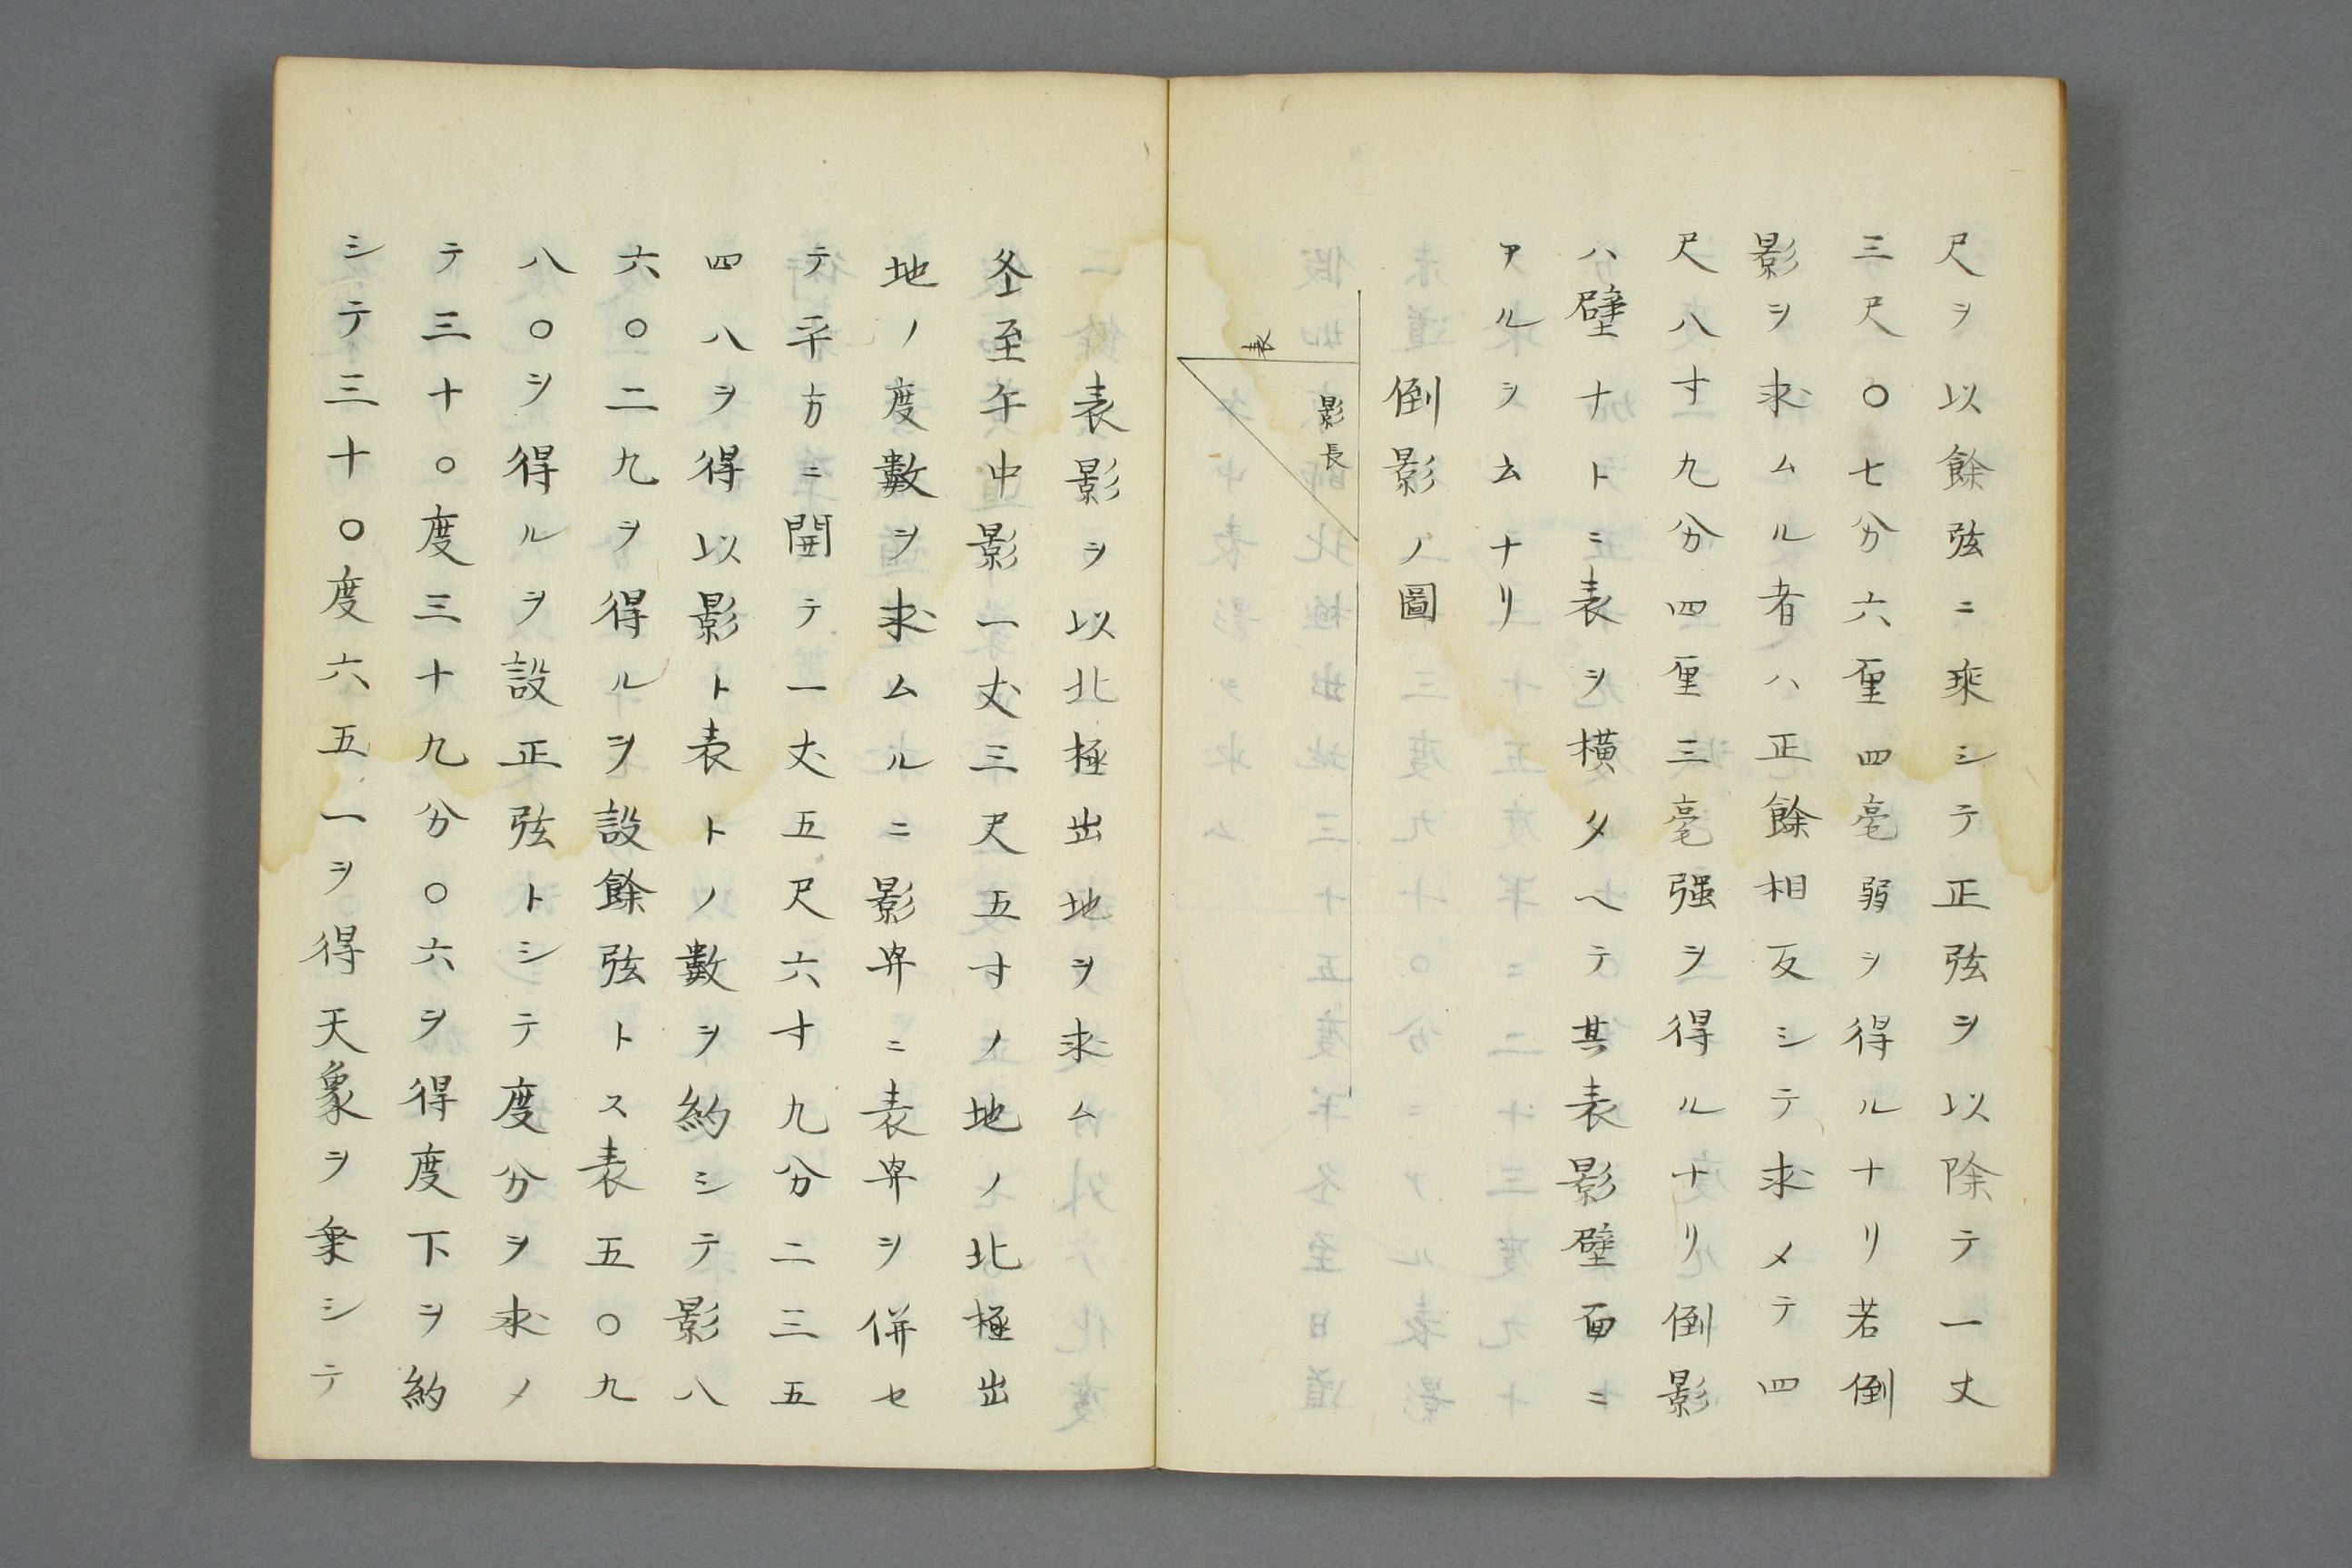 尺ヲ以餘弦ニ乘シテ正弦ヲ以除テ一丈
三尺〇七分六厘四毫弱ヲ得ルナリ若倒
影ヲ求ムル者ハ正餘相反シテ求メテ四
尺八寸九分四厘三毫强ヲ得ルナリ倒影
ハ壁ナトニ表ヲ横タヘテ其表影壁面ニ
アルヲ云ナリ
倒影ノ圖
影長
表
表影ヲ以北極出地ヲ求ム
冬至午中影一丈三尺五寸ノ地ノ北極出
地ノ度數ヲ求ムルニ影巾ニ表巾ヲ併セ
テ平方ニ開テ一丈五尺六寸九分二三五
四八ヲ得以影ト表トノ數ヲ約シテ影八
六〇二九ヲ得ルヲ設餘弦トス表五〇九
八〇ヲ得ルヲ設正弦トシテ度分ヲ求メ
テ三十〇度三十九分〇六ヲ得度下ヲ約
シテ三十〇度六五一ヲ得天象ヲ乗シテ